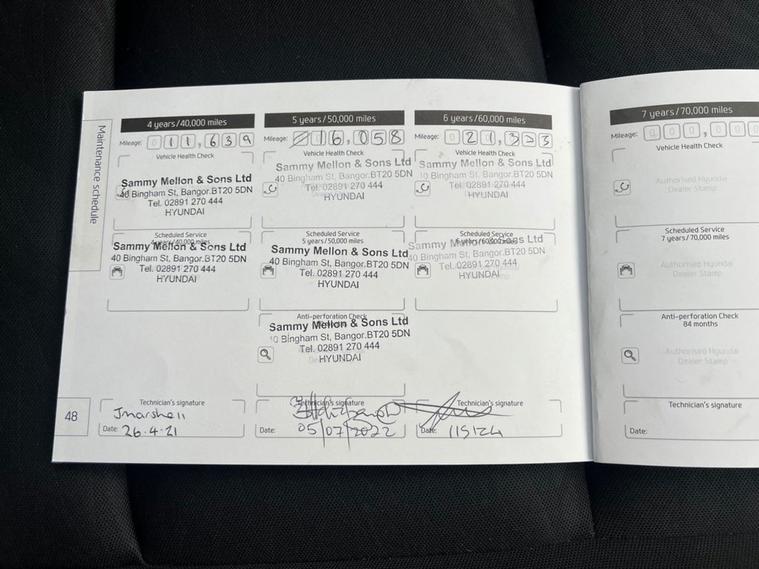 Maintenance schedule
48
4 years/40,000 miles
Mileage: 0 1 1 , 6 3 9
Vehicle Health Check
Sammy Mellon & Sons Ltd
40 Bingham St, Bangor.BT20 5DN
Tel. 02891 270 444
HYUNDAI
Scheduled Service
4 years/40,000 miles
Sammy Mellon & Sons Ltd
40 Bingham St, Bangor.BT20 5DN
Tel. 02891 270 444
HYUNDAI
Technician's signature
J marshall
Date: 26.4.21
5 years/50,000 miles
Mileage: 0 1 6 , 0 5 8
Vehicle Health Check
Sammy Mellon & Sons Ltd
40 Bingham St, Bangor.BT20 5DN
Tel. 02891 270 444
HYUNDAI
Scheduled Service
5 years/50,000 miles
Sammy Mellon & Sons Ltd
40 Bingham St, Bangor.BT20 5DN
Tel. 02891 270 444
HYUNDAI
Anti-perforation Check
Sammy Mellon & Sons Ltd
10 Bingham St, Bangor.BT20 5DN
Tel. 02891 270 444
HYUNDAI
Technician's signature
Date: 05/07/2022
6 years/60,000 miles
Mileage: 0 2 1 , 3 2 3
Vehicle Health Check
Sammy Mellon & Sons Ltd
10 Bingham St, Bangor.BT20 5DN
Tel. 02891 270 444
HYUNDAI
Scheduled Service
6 years/60,000 miles
Sammy Mellon & Sons Ltd
40 Bingham St, Bangor.BT20 5DN
Tel. 02891 270 444
HYUNDAI
Technician's signature
Date: 1/5/24
7 years/70,000 miles
Mileage: 0 0 0 , 0 0 0
Vehicle Health Check
Authorised Hyundai
Dealer Stamp
Scheduled Service
7 years/70,000 miles
Authorised Hyundai
Dealer Stamp
Anti-perforation Check
84 months
Authorised Hyundai
Dealer Stamp
Technician's signature
Date: